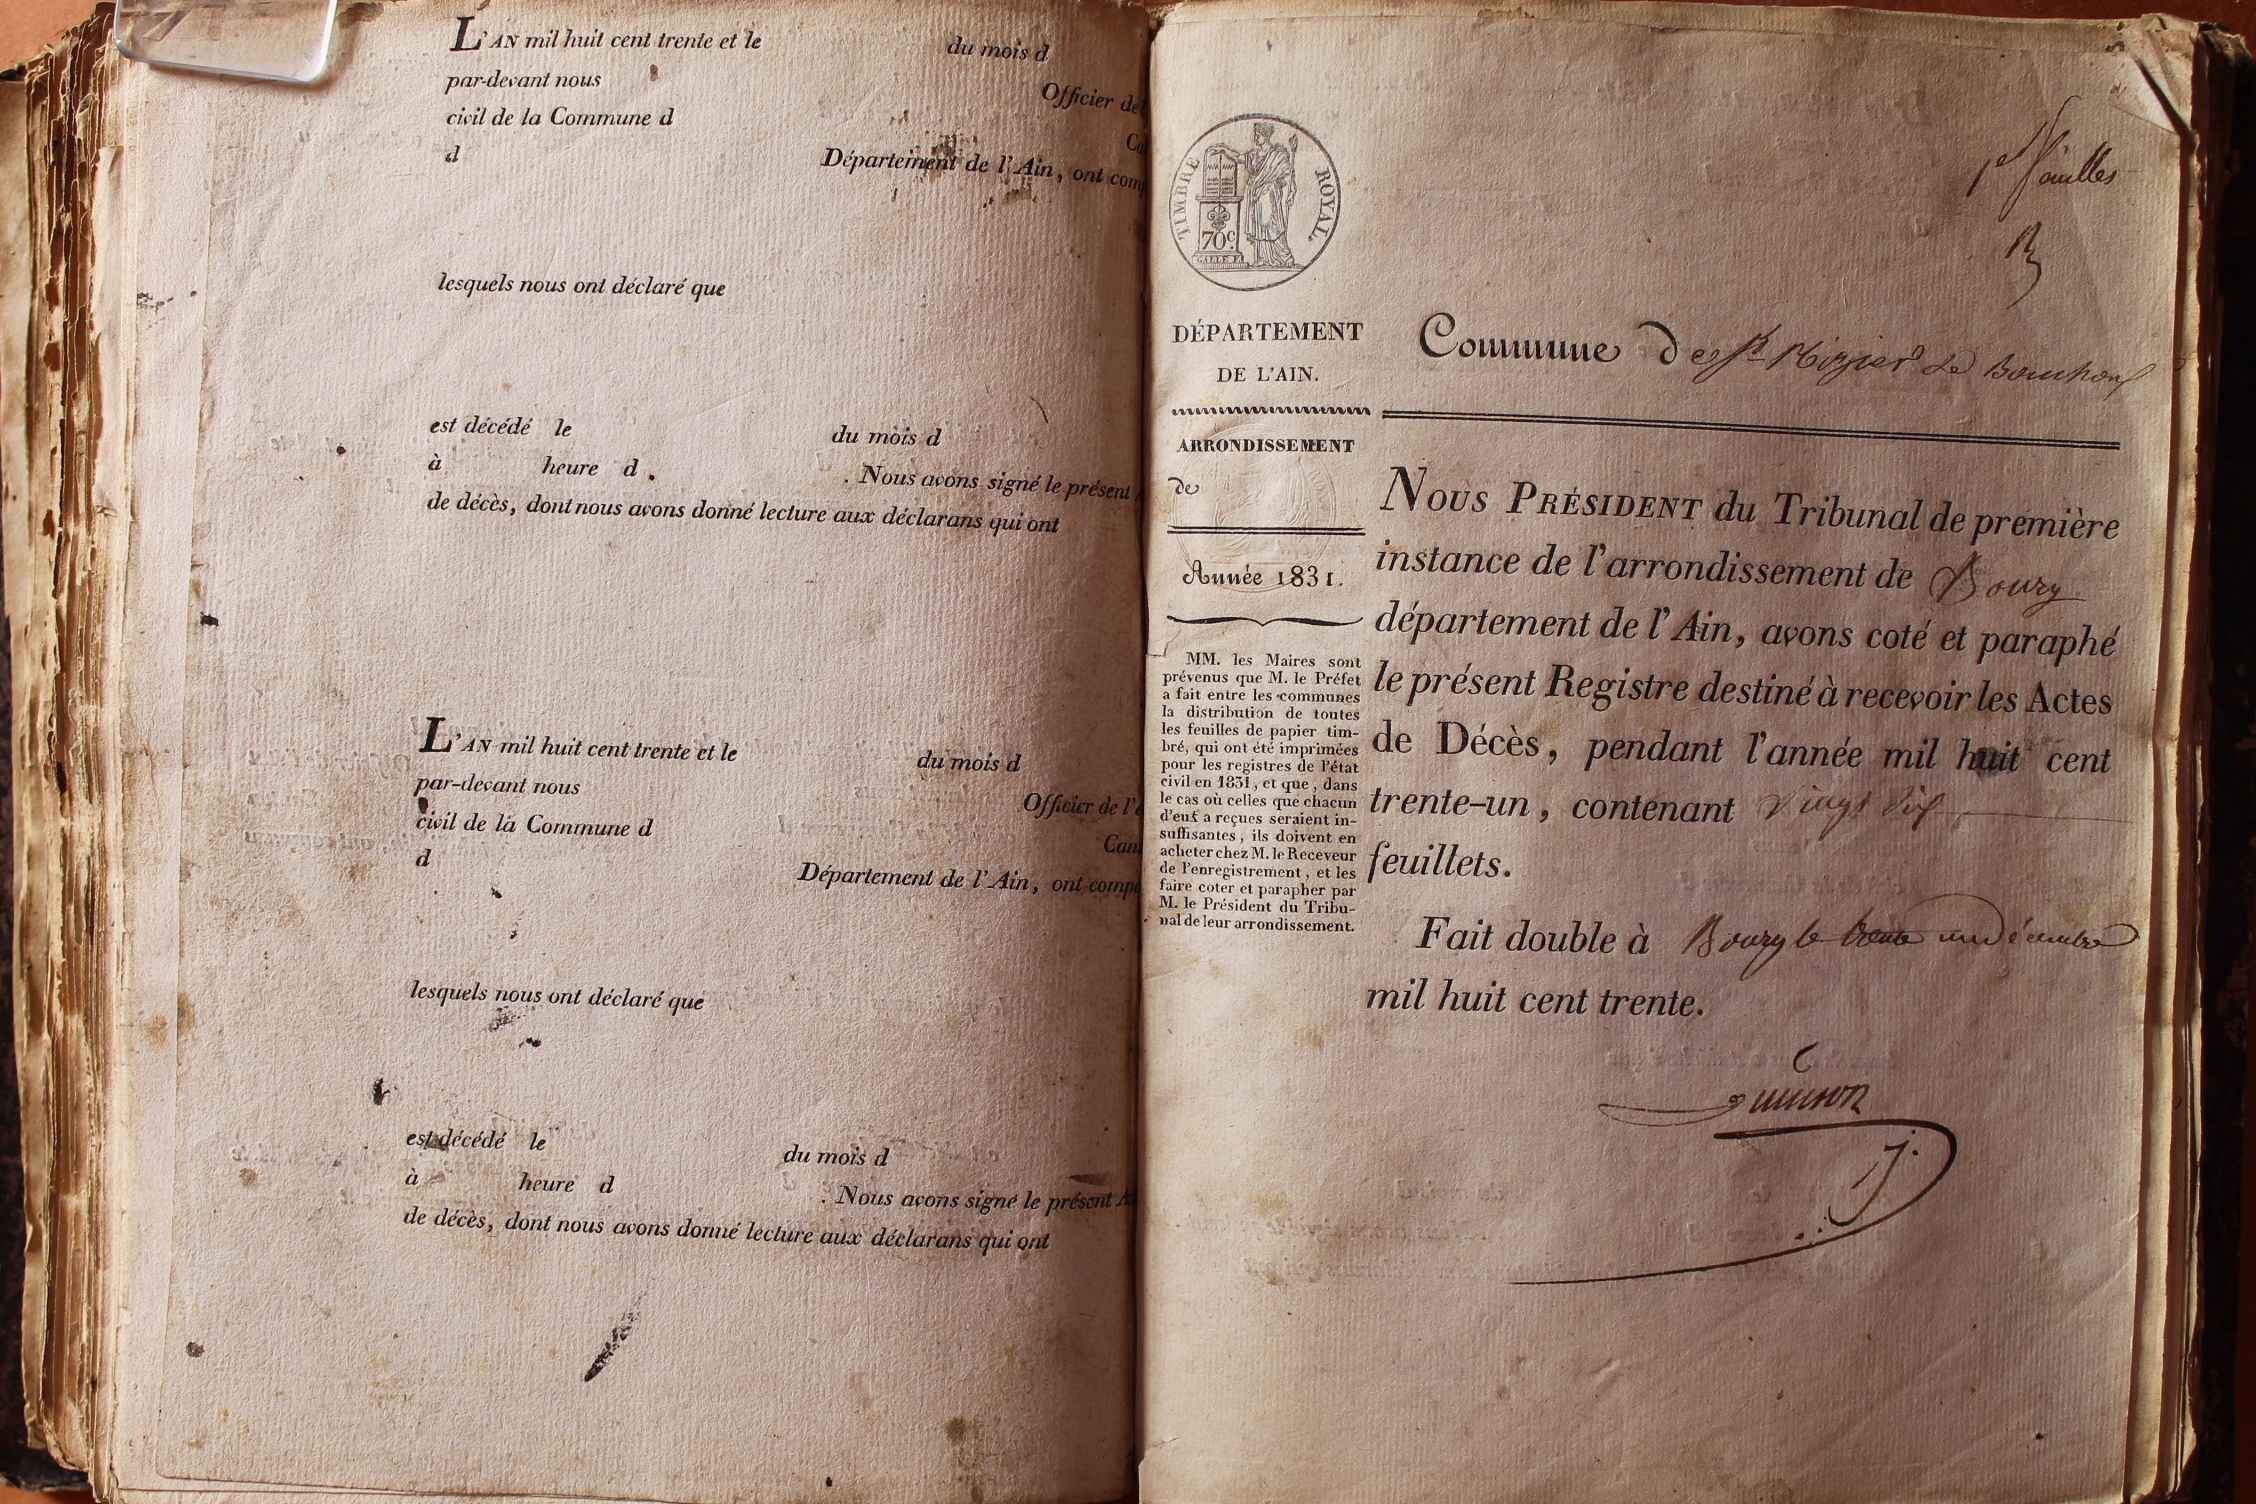 L'AN mil huit cent trente et le du mois d
par-devant nous Officier de
civil de la Commune d
d Département de l'Ain, ont comp
lesquels nous ont déclaré que
est décédé le du mois d
à heure d . Nous avons signé le présent
de décès, dont nous avons donné lecture aux déclarans qui ont
L'AN mil huit cent trente et le du mois d
par-devant nous Officier de l'é
civil de la Commune d Can
d Département de l'Ain, ont compa
lesquels nous ont déclaré que
est décédé le du mois d
à heure d . Nous avons signé le présent A
de décès, dont nous avons donné lecture aux déclarans qui ont
TIMBRE ROYAL
70c
DÉPARTEMENT
DE L'AIN.
ARRONDISSEMENT
de
Année 1831.
MM. les Maires sont
prévenus que M. le Préfet
a fait entre les communes
la distribution de toutes
les feuilles de papier tim-
bré, qui ont été imprimées
pour les registres de l'état
civil en 1831, et que, dans
le cas où celles que chacun
d'eux a reçues seraient in-
suffisantes, ils doivent en
acheter chez M. le Receveur
de l'enregistrement, et les
faire coter et parapher par
M. le Président du Tribu-
nal de leur arrondissement.
Commune de
NOUS PRÉSIDENT du Tribunal de première
instance de l'arrondissement de Bourg
département de l'Ain, avons coté et paraphé
le présent Registre destiné à recevoir les Actes
de Décès, pendant l'année mil huit cent
trente-un, contenant vingt six
feuillets.
Fait double à Bourg le trente un décembre
mil huit cent trente.